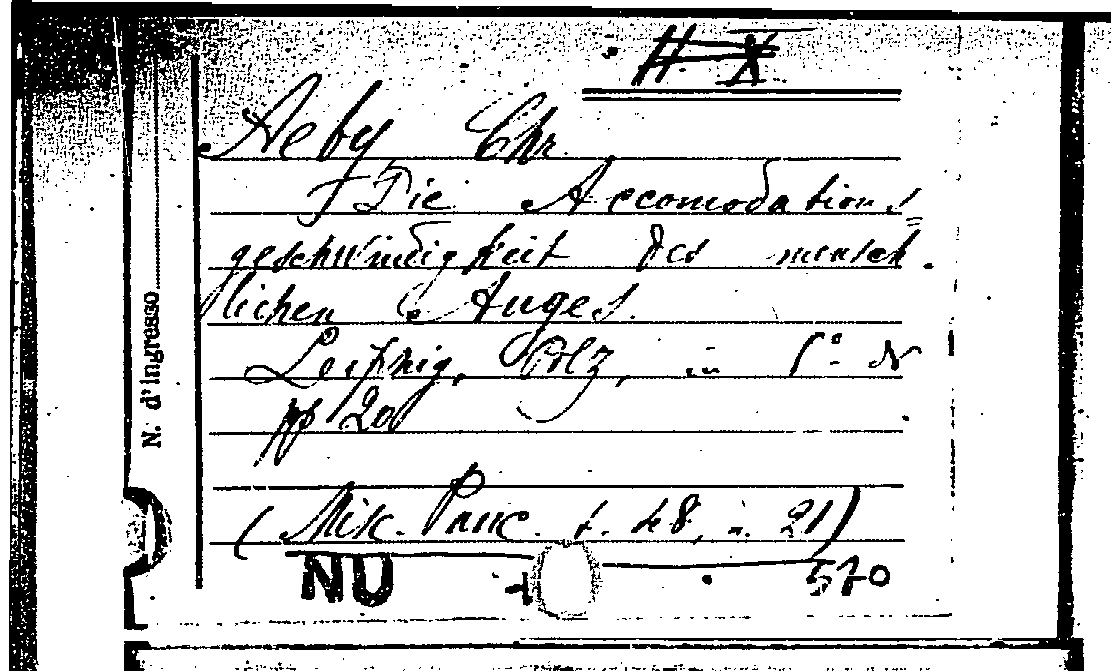 Aeby Chr.
Die Accomodations=
geschwindigkeit des mensch-
lichen Auges.
Leipzig, Polz, in 8° N
pp 20
(Misc. Panc. t. 48, n. 21)
NU 570
N. d'ingresso